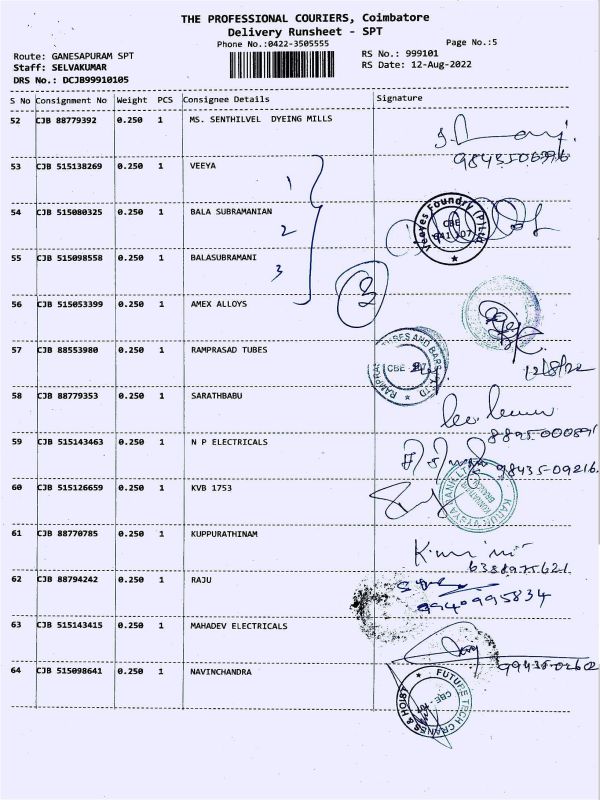 THE PROFESSIONAL COURIERS, Coimbatore
Delivery Runsheet - SPT
Phone No.:0422-3505555
Page No.:5
Route: GANESAPURAM SPT
RS No.: 999101
Staff: SELVAKUMAR
RS Date: 12-Aug-2022
DRS No.: DCJB99910105
S No Consignment No Weight PCS Consignee Details Signature
52 CJB 88779392 0.250 1 MS. SENTHILVEL DYEING MILLS
53 CJB 515138269 0.250 1 VEEYA
1
54 CJB 515080325 0.250 1 BALA SUBRAMANIAN
2
Veeyes Foundry (P) Ltd
CBE
641 107
55 CJB 515098558 0.250 1 BALASUBRAMANI
3
3
56 CJB 515053399 0.250 1 AMEX ALLOYS
57 CJB 88553980 0.250 1 RAMPRASAD TUBES
12/8/22
58 CJB 88779353 0.250 1 SARATHBABU
59 CJB 515143463 0.250 1 N P ELECTRICALS
98435-09216
60 CJB 515126659 0.250 1 KVB 1753
61 CJB 88770785 0.250 1 KUPPURATHINAM
62 CJB 88794242 0.250 1 RAJU
9940995834
63 CJB 515143415 0.250 1 MAHADEV ELECTRICALS
64 CJB 515098641 0.250 1 NAVINCHANDRA
FUTURE TECH CRANES & HOIST
CBE